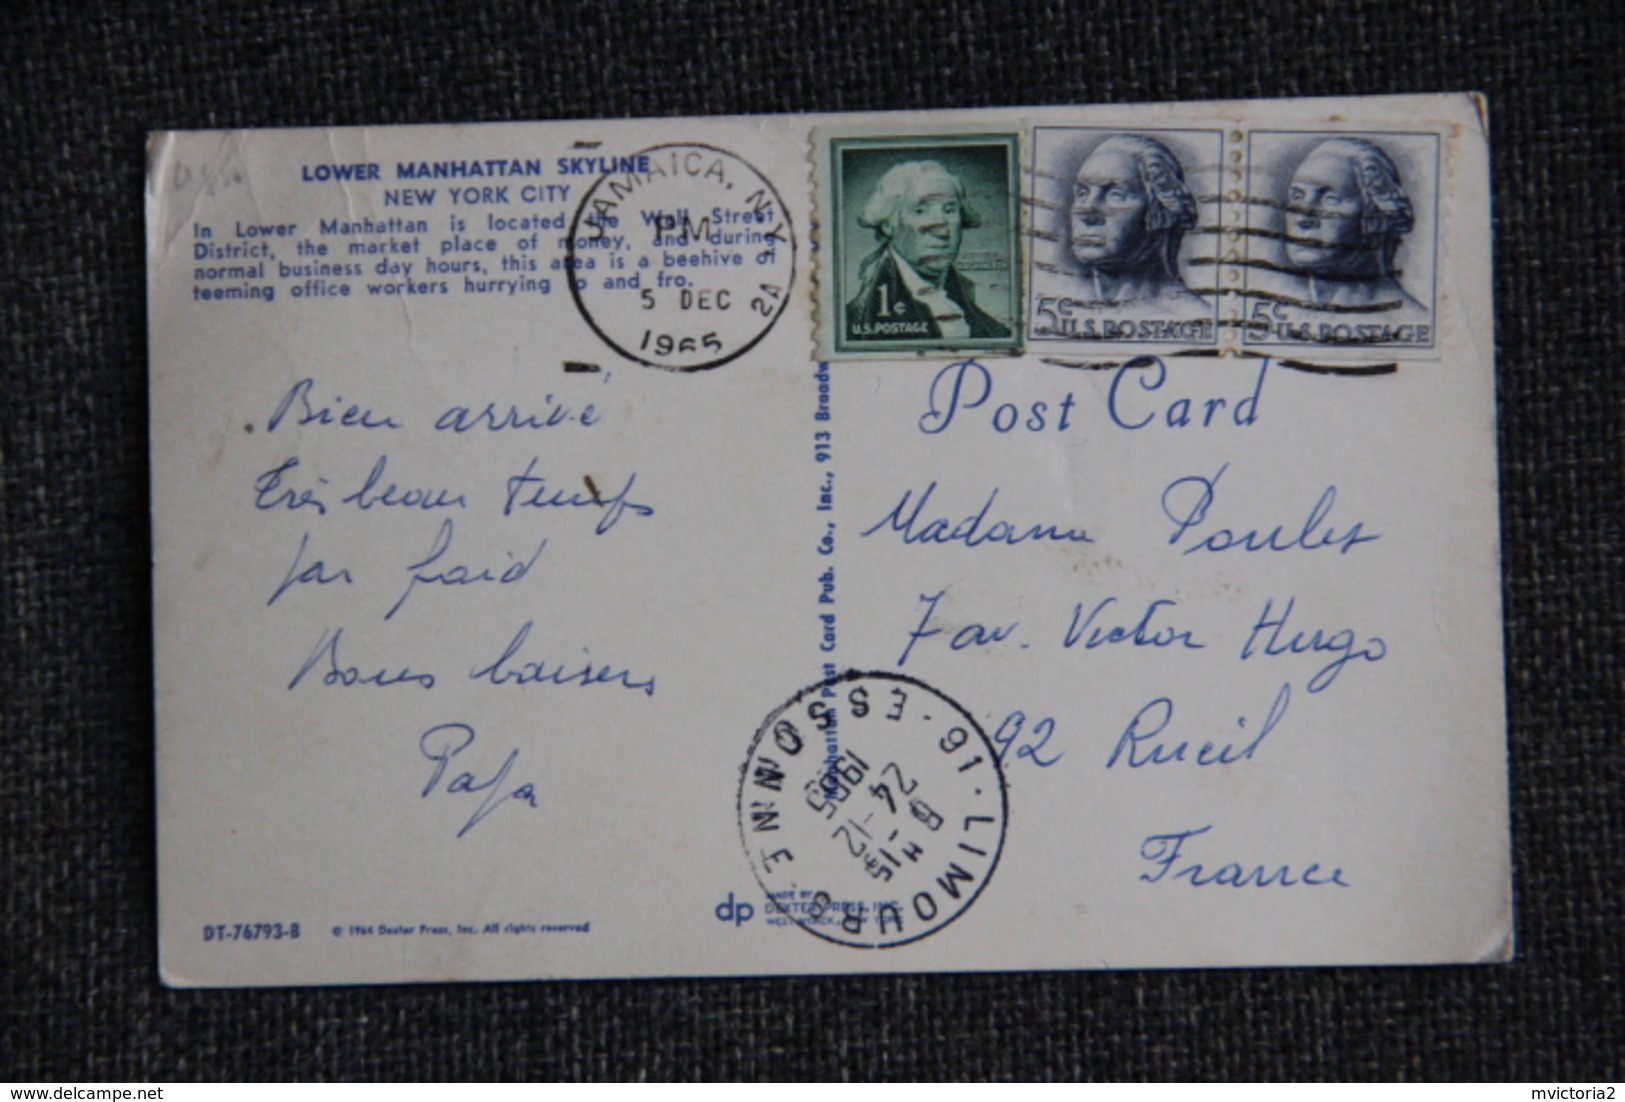 LOWER MANHATTAN SKYLINE
NEW YORK CITY
In Lower Manhattan is located the Wall Street
District, the market place of money, and during
normal business day hours, this area is a beehive of
teeming office workers hurrying to and fro.
JAMAICA, N.Y.
PM
5 DEC
1965
2A
1¢
U.S. POSTAGE
5c
U.S. POSTAGE
5c
U.S. POSTAGE
Post Card
Bien arrivé
Très beau temps
par froid
Bons baisers
Papa
Manhattan Post Card Pub. Co., Inc., 913 Broadw
Madame Poulet
7 av. Victor Hugo
92 Rueil
France
91·LIMOURS ESSONNE
15H
24-12
1965
dp MADE BY
DEXTER PRESS, INC.
WEST NYACK, NEW YORK
DT-76793-B © 1964 Dexter Press, Inc. All rights reserved
delcampe.net
mvictoria2